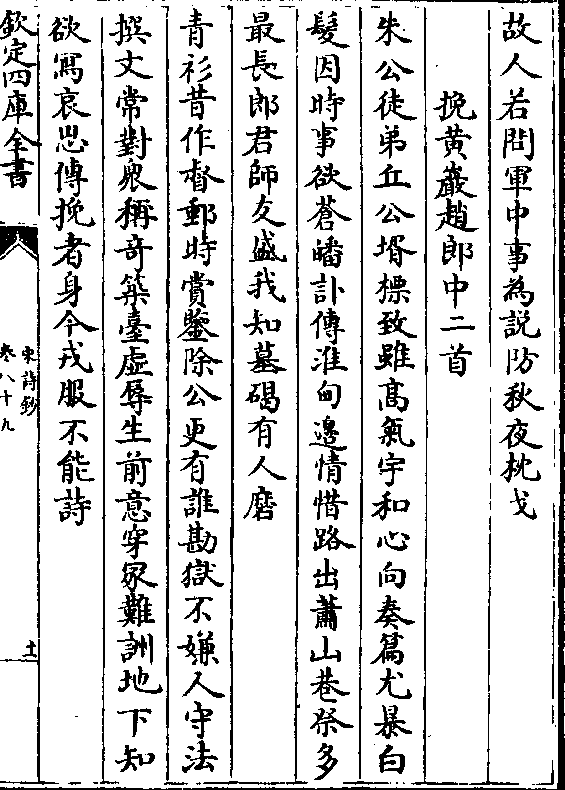 故人若問軍中事為說防秋夜枕戈
挽黄巖趙郎中二首
朱公徒弟丘公壻標致雖髙氣宇和心向奏篇尤暴白
髮因時事欲蒼皤訃傳淮甸邉情惜路出蕭山巷祭多
最長郎君師友盛我知墓碣有人磨
青衫昔作督郵時賞鑒除公更有誰勘獄不嫌人守法
撰文常對衆稱奇築臺虚辱生前意穿冢難詶地下知
欲寫哀思傳挽者身今戎服不能詩
欽定四庫全書
宋詩鈔
卷八十九
十一